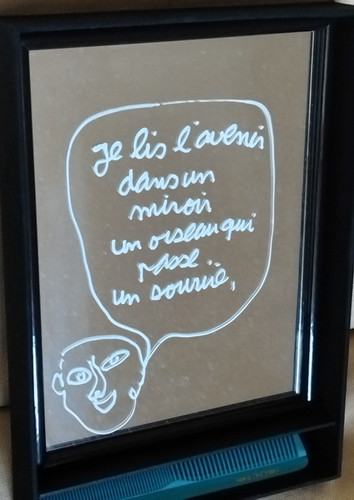 Je lis l'avenir
dans un
miroir
un oiseau qui
passe
un sourire,